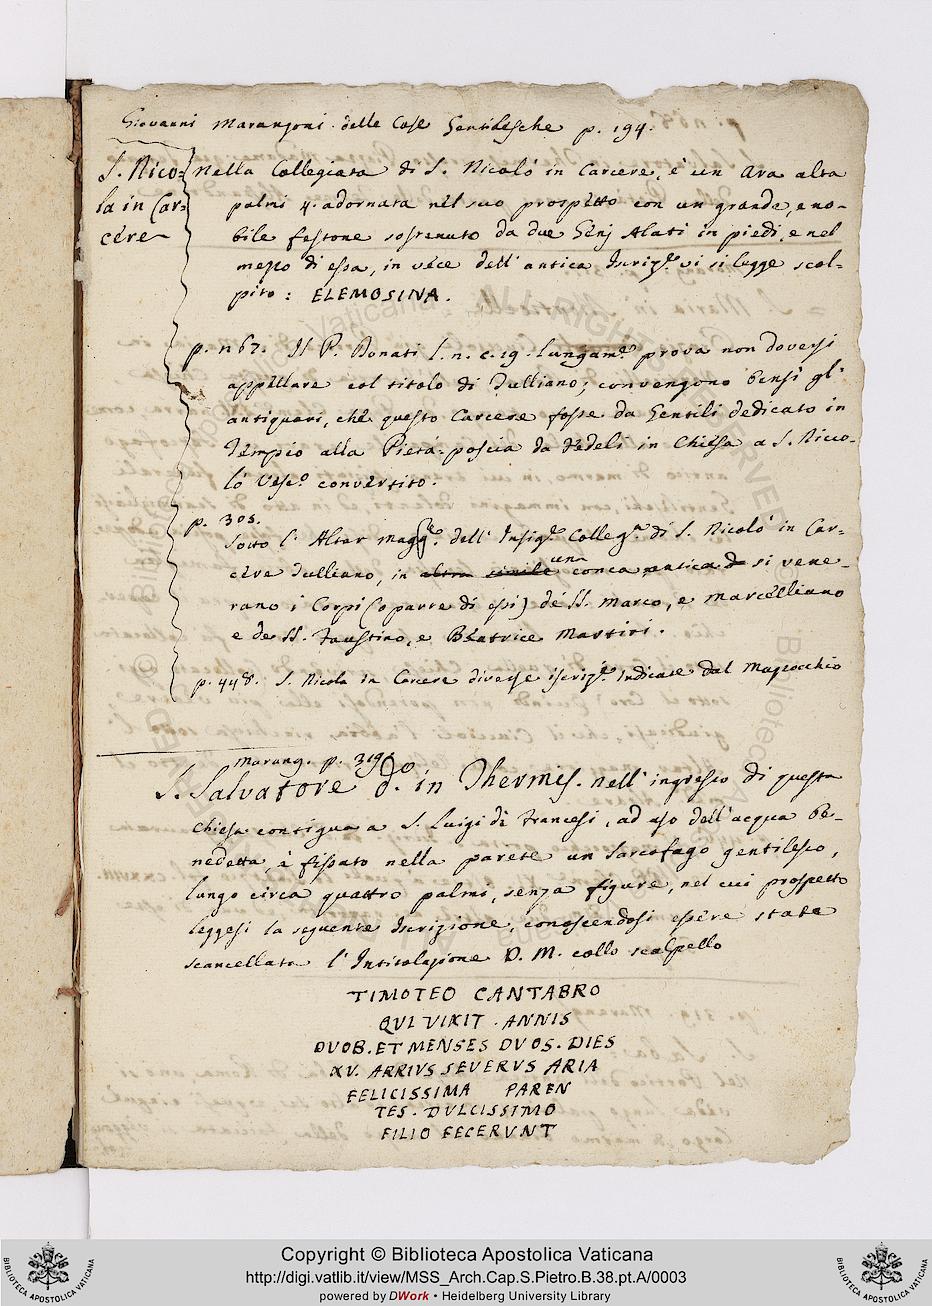 Giovanni Marangoni delle Cose Gentilesche p. 194.
S. Nico-
la in Car-
cere
Nella Collegiata di S. Nicolò in Carcere, è un Ara alta
palmi 4. adornata nel suo prospetto con un grande, e no-
bile festone sostenuto da due Genj Alati in piedi, e nel
mezzo di essa, in vece dell' antica Inscriz.e vi si legge scol-
pito: ELEMOSINA.
p. 267. Il P. Donati l. n. c. 19. lungam.e prova non doversi
appellare col titolo di Tulliano; convengono bensì gl'
antiquari, che questo Carcere fosse da Gentili dedicato in
Tempio alla Pietà: poscia da Fedeli in Chiesa a S. Nicco-
lò Vesc.o convertito.
p. 305.
Sotto l' Altar magg.e dell' Insig.e Colleg.a di S. Nicolò in Car-
cere Tulliano, in altra simile una conca antica d si vene-
rano i Corpi (o parte di essi) de SS. Marco, e Marcelliano
e de SS. Faustino, e Beatrice Martiri.
p. 448. S. Nicola in Carcere diverse iscriz.e indicate dal Mazocchio
Marang. p. 319.
S. Salvatore d.o in Thermis. nell' ingresso di questa
Chiesa contigua a S. Luigi de Francesi, ad uso dell'acqua Be-
nedetta, è fissato nella parete un Sarcofago gentilesco,
lungo circa quattro palmi, senza figure, nel cui prospetto
leggesi la seguente Iscrizione, conoscendosi essere stata
scancellata l' Intitolazione D. M. collo scalpello
TIMOTEO CANTABRO
QUI VIXIT . ANNIS
DVOB. ET MENSES DVOS. DIES
XV. ARRIVS SEVERVS ARIA
FELICISSIMA PAREN
TES. DVLCISSIMO
FILIO FECERVNT
Copyright © Biblioteca Apostolica Vaticana
http://digi.vatlib.it/view/MSS_Arch.Cap.S.Pietro.B.38.pt.A/0003
powered by DWork • Heidelberg University Library